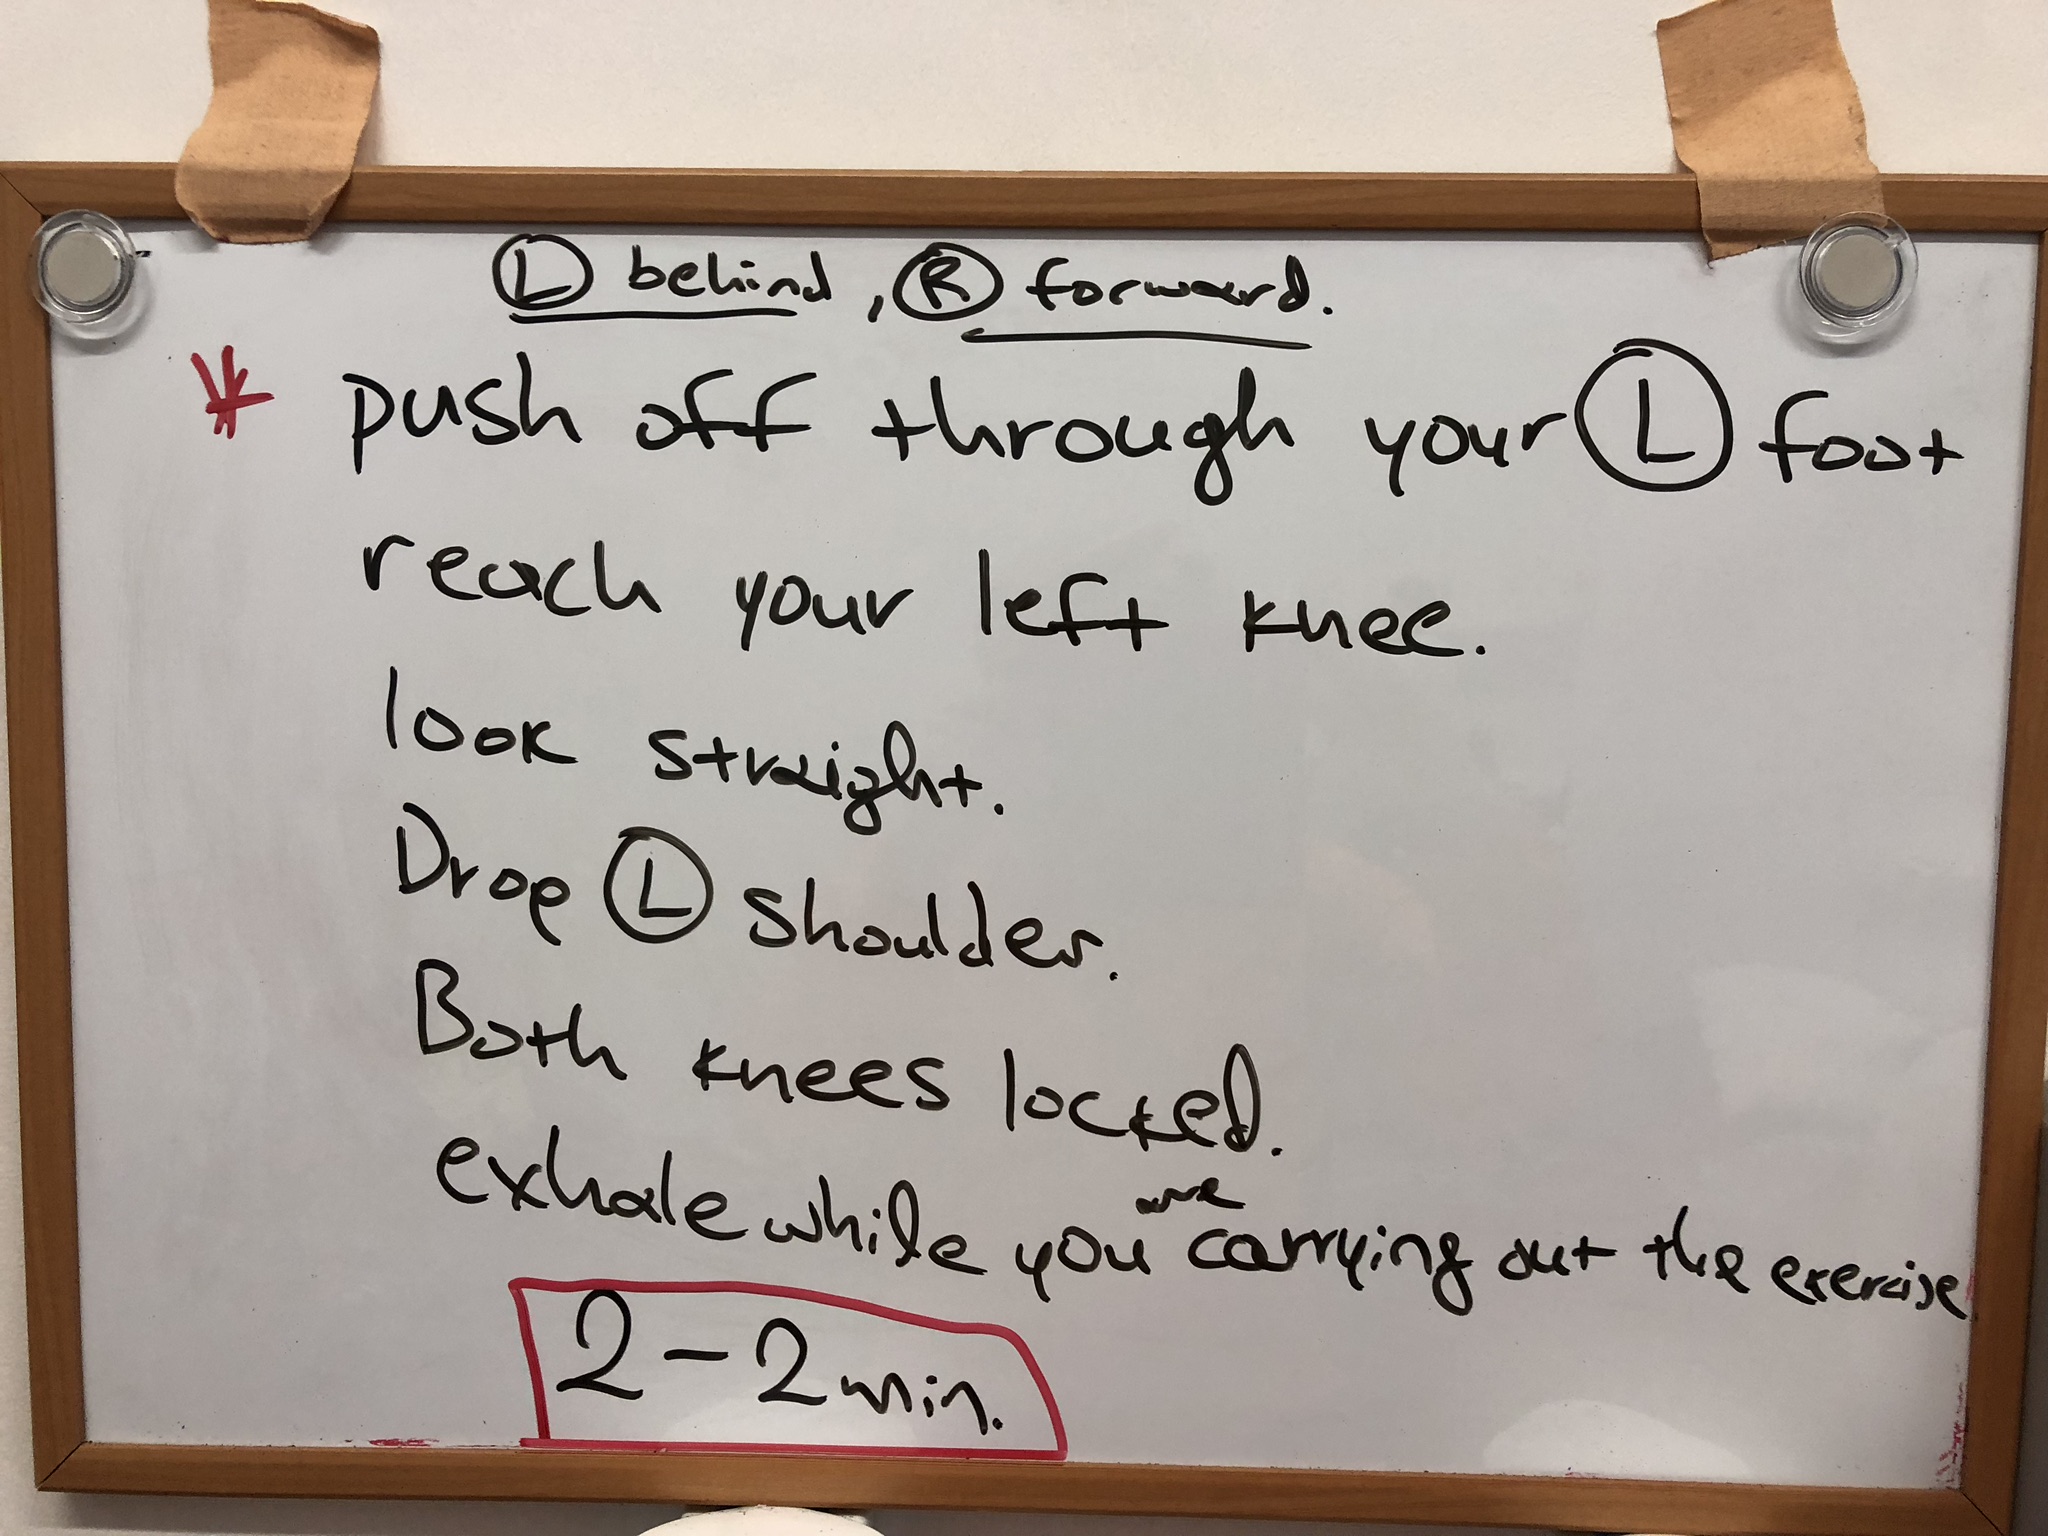 Ⓛ behind, Ⓡ forward.
* push off through your Ⓛ foot
reach your left knee.
look straight.
Drop Ⓛ shoulder.
Both knees locked.
exhale while you are carrying out the exercise
2 - 2 min.